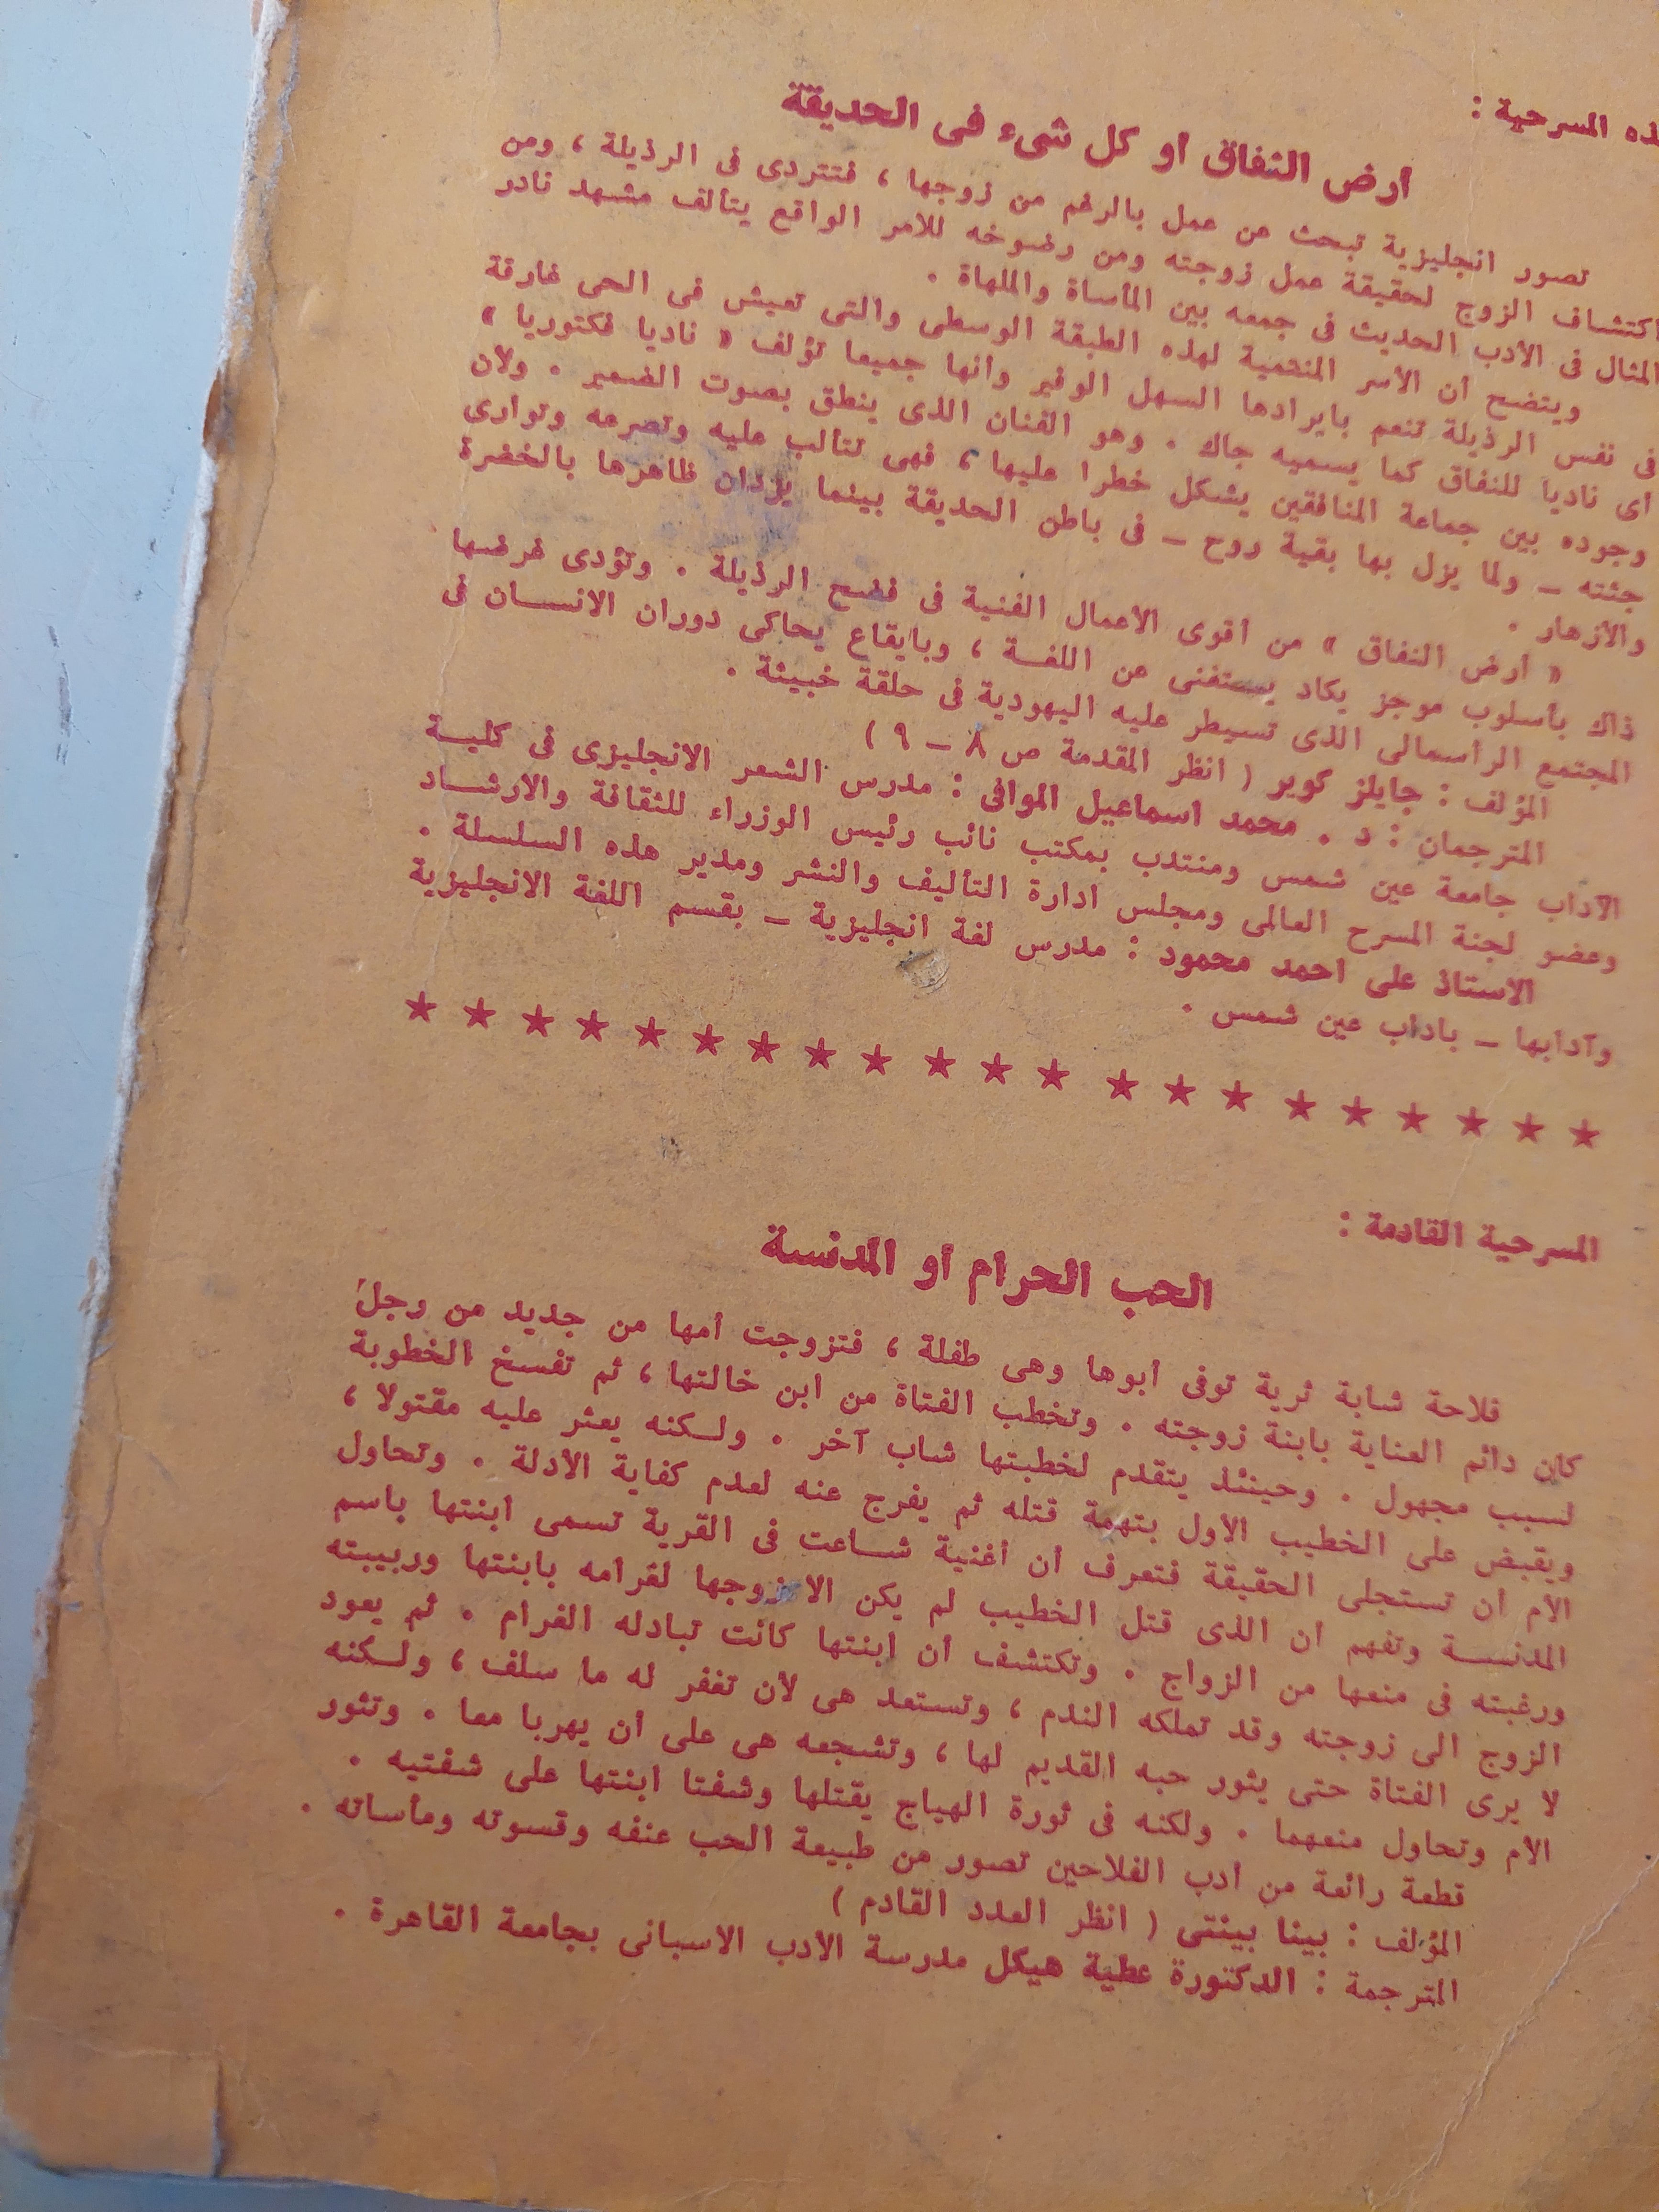 هذه المسرحية :
أرض النفاق أو كل شىء فى الحديقة
تصور انجليزية تبحث عن عمل بالرغم من زوجها ، فتتردى فى الرذيلة ، ومن
اكتشاف الزوج لحقيقة عمل زوجته ومن رضوخه للأمر الواقع يتألف مشهد نادر
المثال فى الأدب الحديث فى جمعه بين المأساة والملهاة .
ويتضح أن الأسر المنتمية لهذه الطبقة الوسطى والتى تعيش فى الحى غارقة
فى نفس الرذيلة تنعم بايرادها السهل الوفير وأنها جميعا تؤلف « ناديا فكتوريا »
أى ناديا للنفاق كما يسميه جاك . وهو الفنان الذى ينطق بصوت الضمير . ولأن
وجوده بين جماعة المنافقين يشكل خطرا عليها ، فهى تتألب عليه وتصرعه وتوارى
جثته – ولما يزل بها بقية روح – فى باطن الحديقة بينما يزدان ظاهرها بالخضرة
والأزهار .
« أرض النفاق » من أقوى الأعمال الفنية فى فضح الرذيلة . وتؤدى غرضها
ذاك بأسلوب موجز يكاد يستغنى عن اللغة ، وبايقاع يحاكى دوران الانسان فى
المجتمع الرأسمالى الذى تسيطر عليه اليهودية فى حلقة خبيثة .
المؤلف : جايلز كوبر ( انظر المقدمة ص ٨ – ٩ )
المترجمان : د . محمد اسماعيل الموافى : مدرس الشعر الانجليزى فى كلية
الآداب جامعة عين شمس ومنتدب بمكتب نائب رئيس الوزراء للثقافة والارشاد
وعضو لجنة المسرح العالمى ومجلس ادارة التأليف والنشر ومدير هذه السلسلة .
الأستاذ على أحمد محمود : مدرس لغة انجليزية – بقسم اللغة الانجليزية
وآدابها – بآداب عين شمس .
★ ★ ★ ★ ★ ★ ★ ★ ★ ★ ★ ★ ★ ★ ★ ★ ★ ★ ★ ★ ★
المسرحية القادمة :
الحب الحرام أو المدنسة
فلاحة شابة ثرية توفى أبوها وهى طفلة ، فتزوجت أمها من جديد من رجل
كان دائم العناية بابنة زوجته . وتخطب الفتاة من ابن خالتها ، ثم تفسخ الخطوبة
لسبب مجهول . وحينئذ يتقدم لخطبتها شاب آخر . ولكنه يعثر عليه مقتولا ،
ويقبض على الخطيب الأول بتهمة قتله ثم يفرج عنه لعدم كفاية الأدلة . وتحاول
الأم أن تستجلى الحقيقة فتعرف أن أغنية شاعت فى القرية تسمى ابنتها باسم
المدنسة وتفهم أن الذى قتل الخطيب لم يكن الا زوجها لغرامه بابنتها وربيبته
ورغبته فى منعها من الزواج . وتكتشف أن ابنتها كانت تبادله الغرام . ثم يعود
الزوج الى زوجته وقد تملكه الندم ، وتستعد هى لأن تغفر له ما سلف ، ولكنه
لا يرى الفتاة حتى يثور حبه القديم لها ، وتشجعه هى على أن يهربا معا . وتثور
الأم وتحاول منعهما . ولكنه فى ثورة الهياج يقتلها وشفتا ابنتها على شفتيه .
قطعة رائعة من أدب الفلاحين تصور من طبيعة الحب عنفه وقسوته ومأساته .
المؤلف : بينا بينتى ( انظر العدد القادم )
المترجمة : الدكتورة عطية هيكل مدرسة الأدب الاسبانى بجامعة القاهرة .